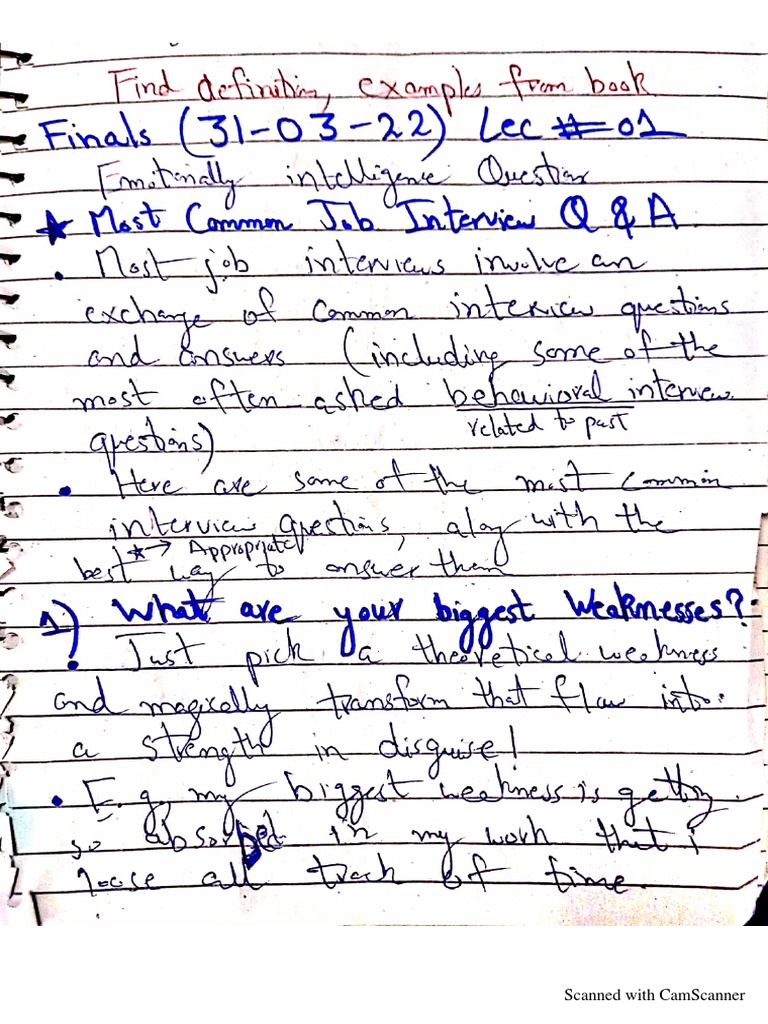 Find definition, examples from book
Finals (31-03-22) Lec # 01
Emotionally intelligence Question
★ Most Common Job Interview Q & A
• Most job interviews involve an
exchange of common interview questions
and answers (including some of the
most often asked behavioral interview
related to past
questions)
• Here are some of the most common
interview questions, along with the
★→ Appropriate
best way to answer them
1) What are your biggest Weaknesses?
• Just pick a theoretical weakness
and magically transform that flaw into
a strength in disguise!
• E.g, my biggest weakness is getting
so absorbed in my work that i
loose all track of time.
Scanned with CamScanner